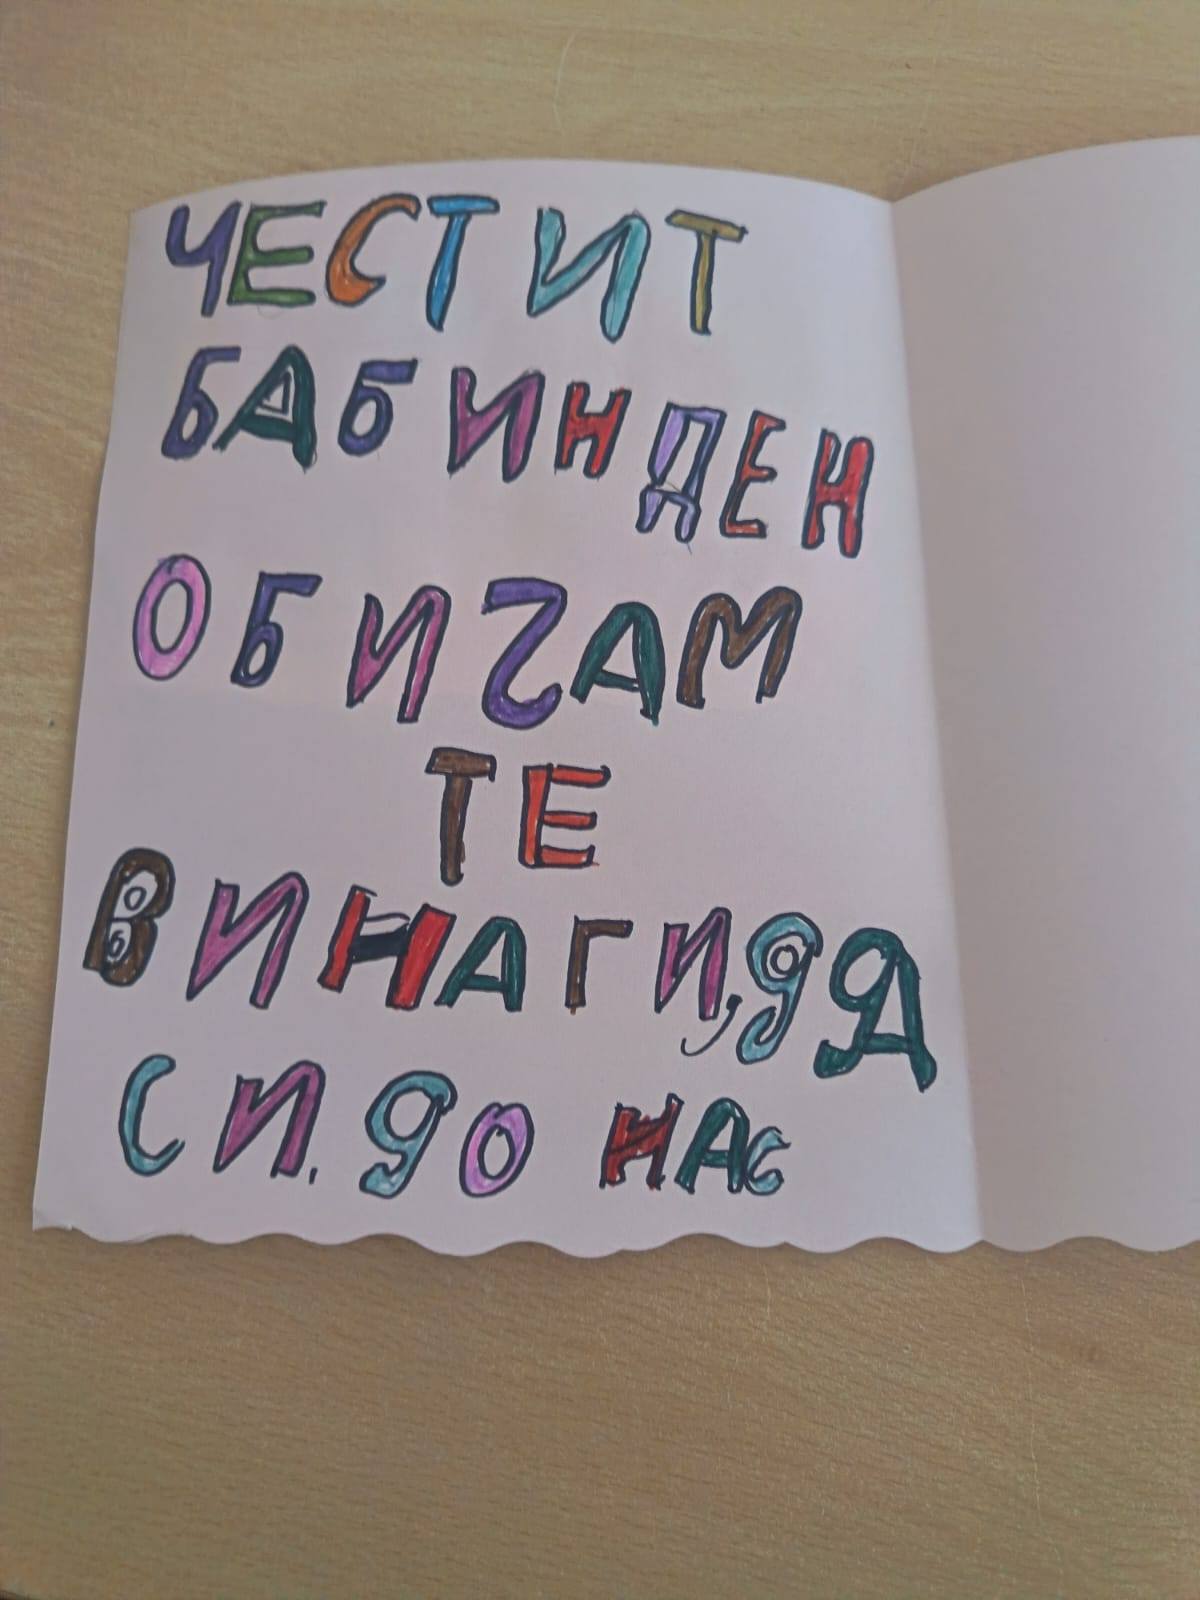 ЧЕСТИТ
БАБИНДЕН
ОБИЧАМ
ТЕ
ВИНАГИ, дА
СИ. дО НАС